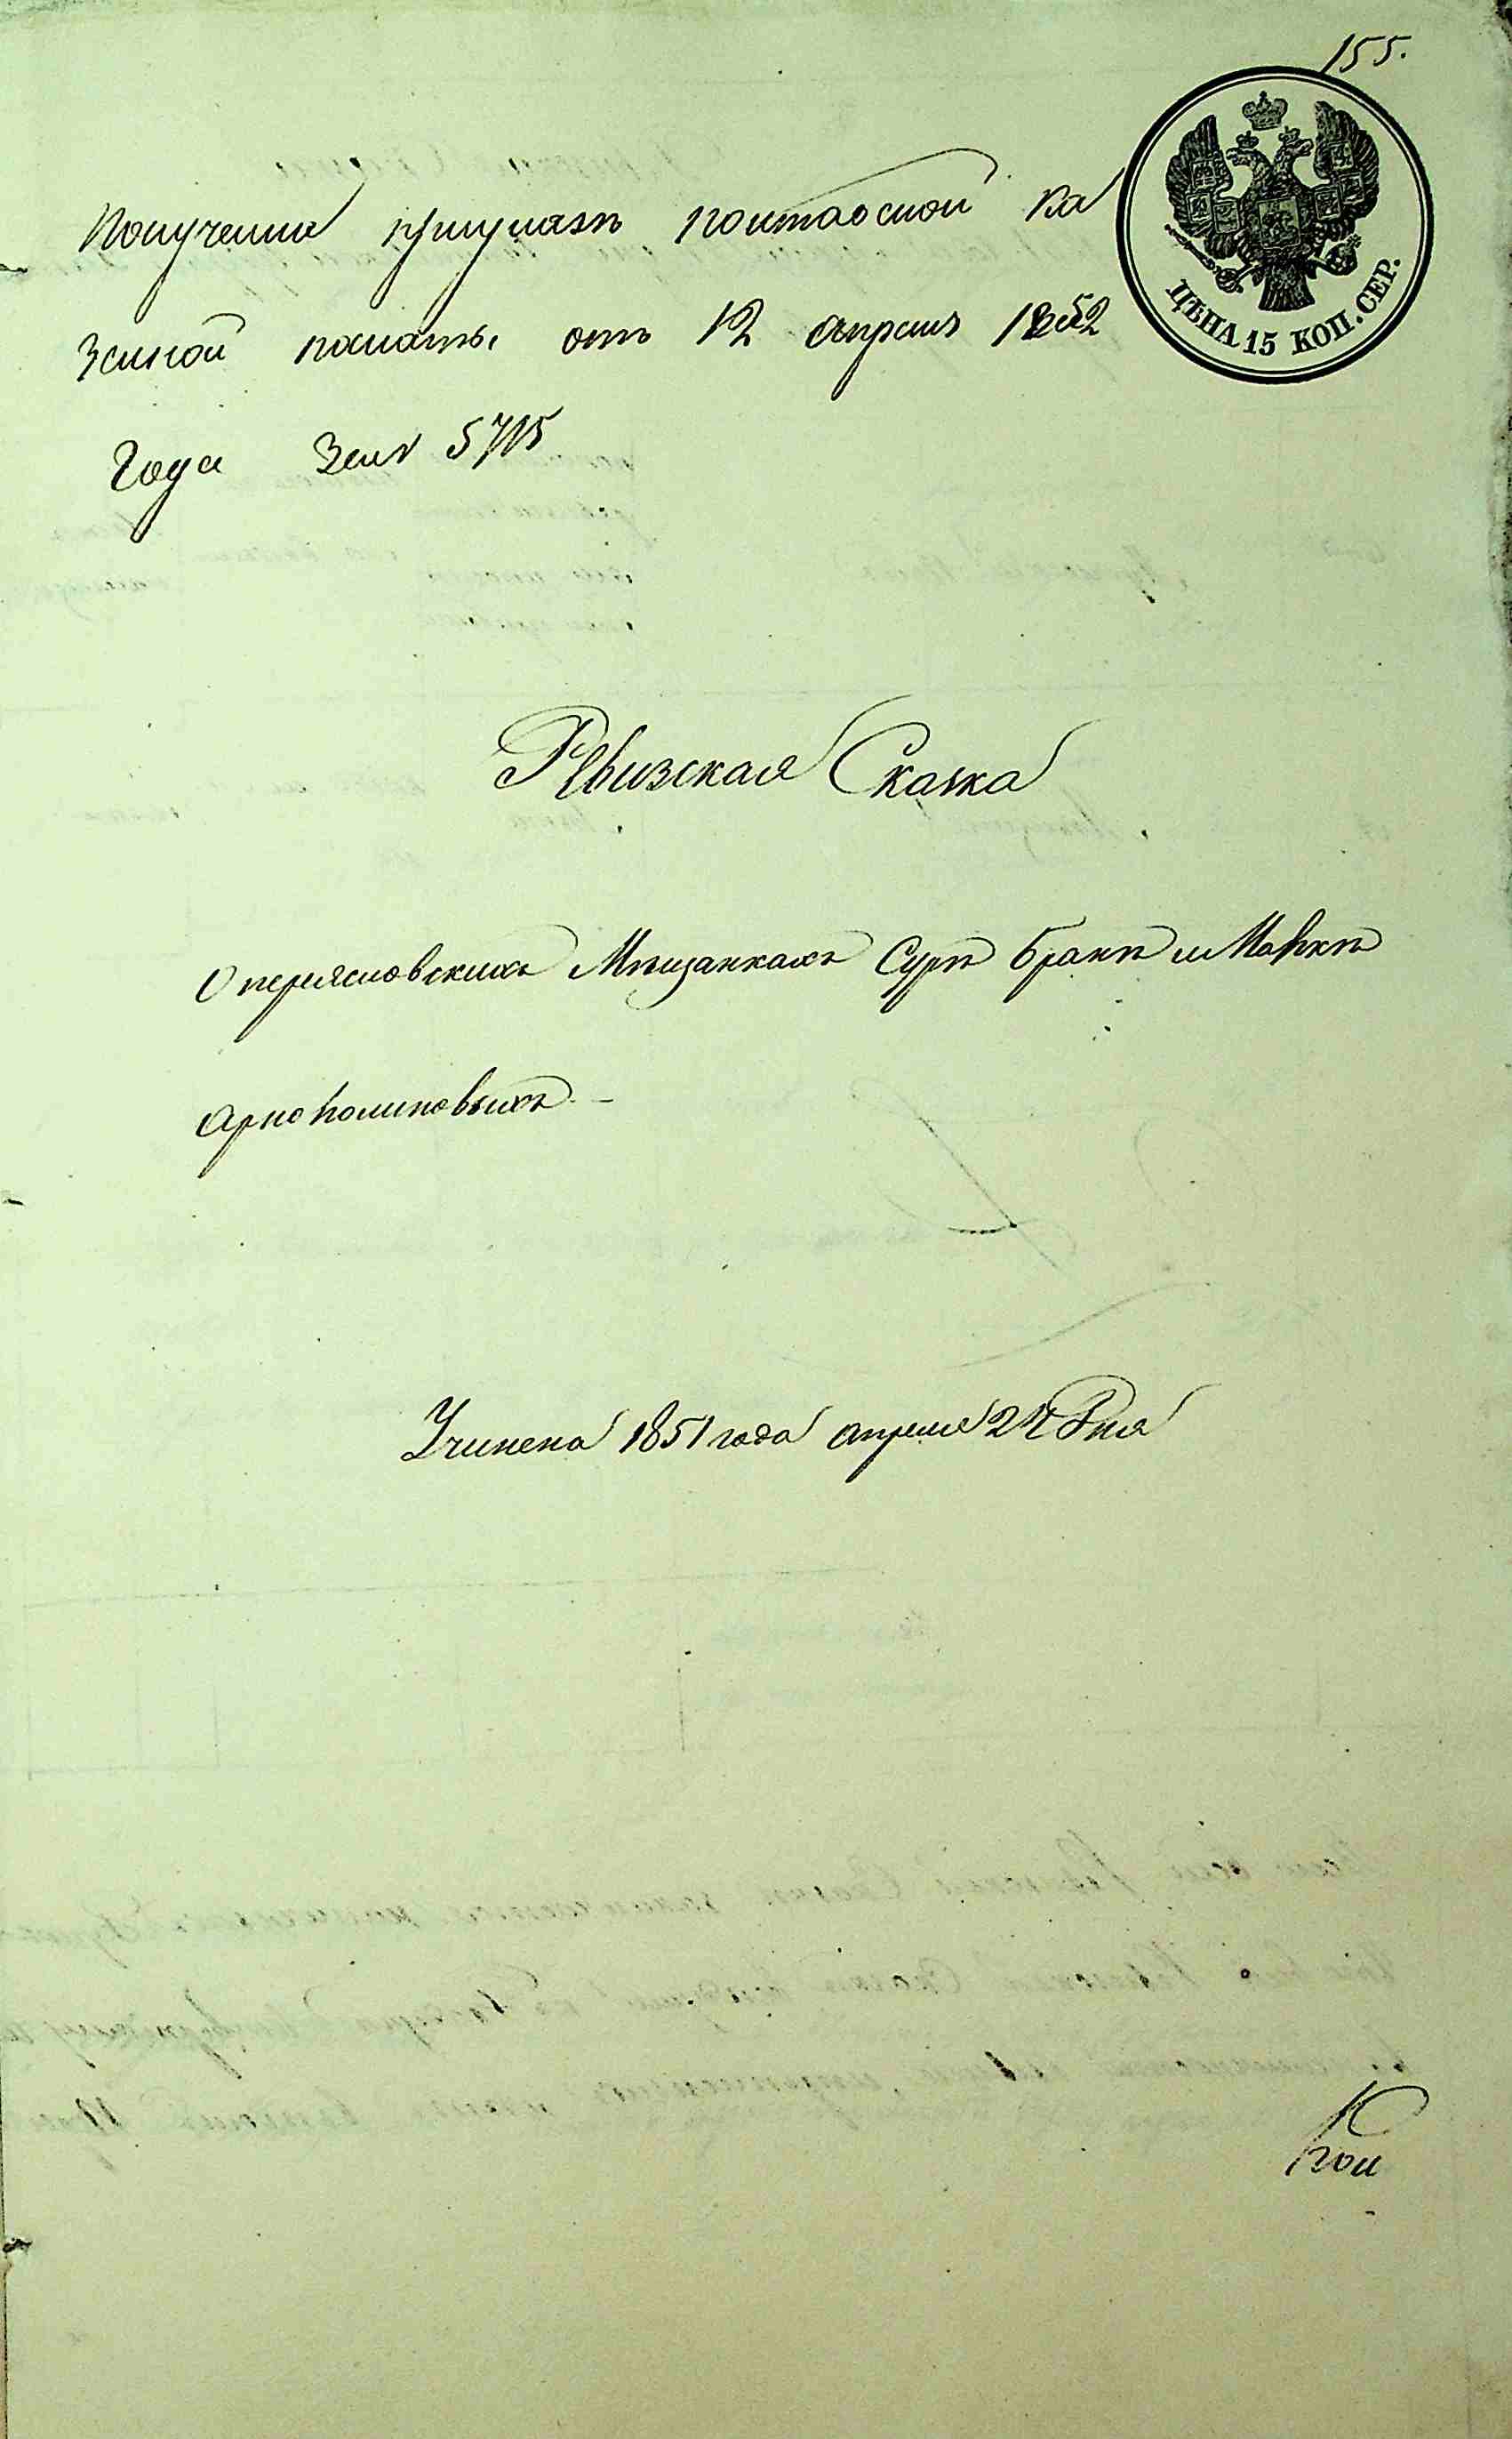 155.
ЦѢНА 15 КОП. СЕР.
Получена при указѣ полтавской Ка
зеной палаты отъ 12 апреля 1852
Года за № 5715
Ревизская Сказка
О переясловскихъ Мѣщанкахъ Сурѣ Бранѣ и Мавкѣ
Учинена 1851 года апреля 24 Дня